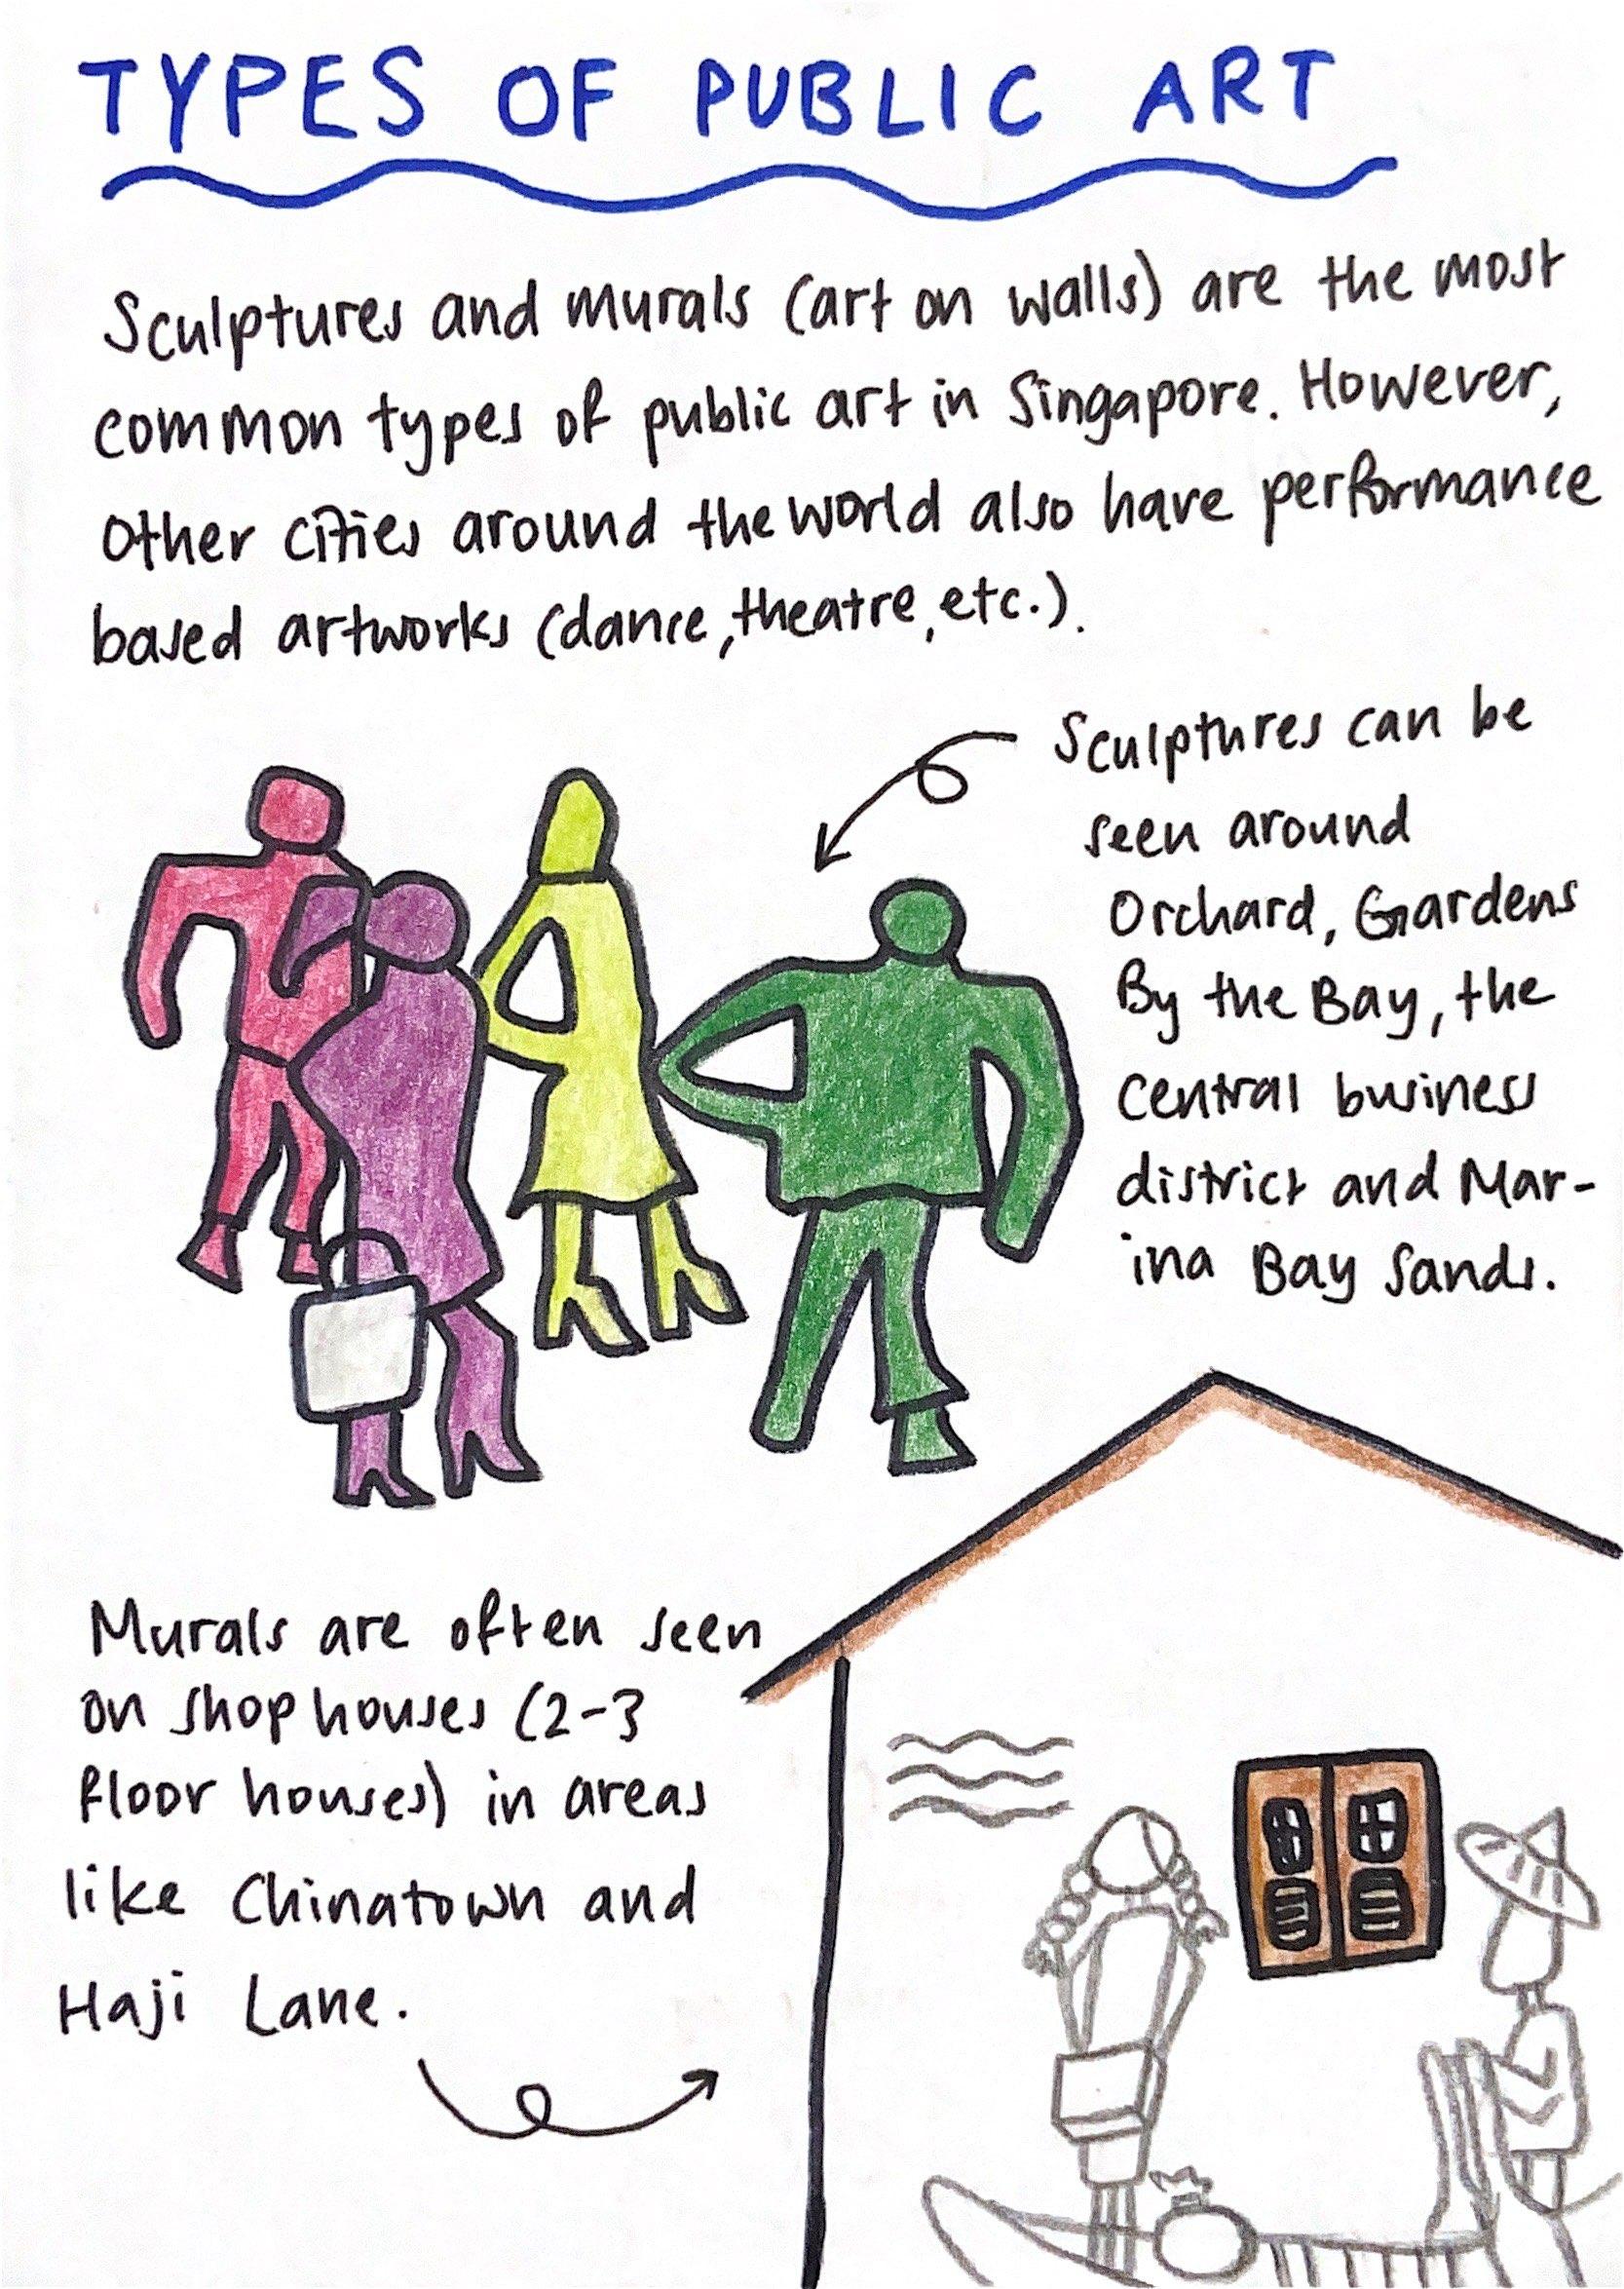 TYPES OF PUBLIC ART
Sculptures and murals (art on walls) are the most
common types of public art in Singapore. However,
other cities around the world also have performance
based artworks (dance, theatre, etc.).
Sculptures can be
seen around
Orchard, Gardens
By the Bay, the
central business
district and Mar-
ina Bay Sands.
Murals are often seen
on shop houses (2-3
floor houses) in areas
like Chinatown and
Haji Lane.